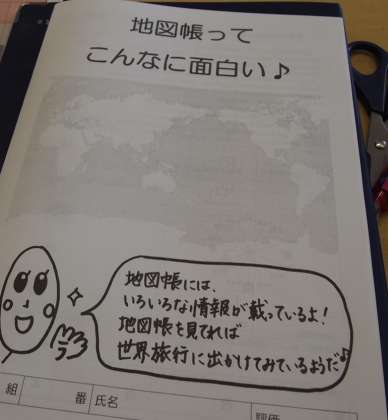 地図帳って
こんなに面白い♪
地図帳には、
いろいろな情報が載っているよ!
地図帳を見てれば
世界旅行に出かけてみているようだ♪
組
番
氏名
評価